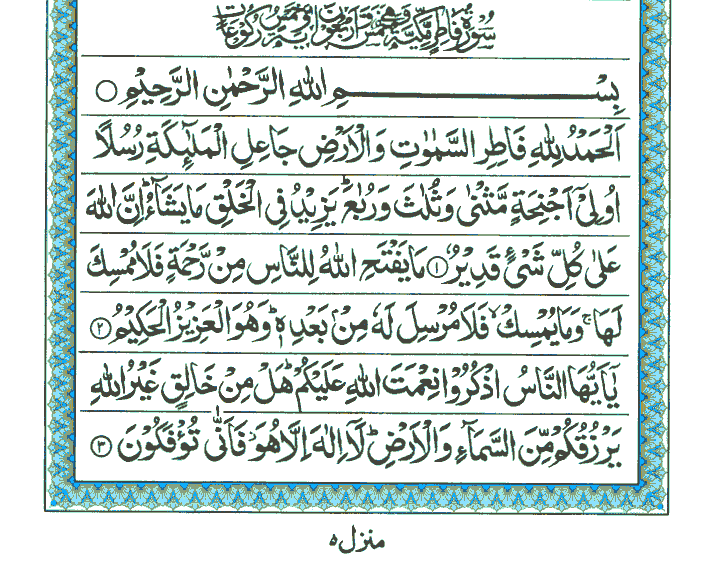 سُوْرَةُ فَاطِرٍ مَّكِّيَّةٌ وَّهِيَ خَمْسٌ وَّاَرْبَعُوْنَ اٰيَةً وَّخَمْسُ رُكُوْعَاتٍ
بِسْمِ اللهِ الرَّحْمٰنِ الرَّحِيْمِ ○
اَلْحَمْدُ لِلّٰهِ فَاطِرِ السَّمٰوٰتِ وَالْاَرْضِ جَاعِلِ الْمَلٰٓئِكَةِ رُسُلًا
اُولِيْٓ اَجْنِحَةٍ مَّثْنٰى وَثُلٰثَ وَرُبٰعَ ؕ يَزِيْدُ فِي الْخَلْقِ مَا يَشَآءُ ؕ اِنَّ اللهَ
عَلٰى كُلِّ شَيْءٍ قَدِيْرٌ ﴿۱﴾ مَا يَفْتَحِ اللهُ لِلنَّاسِ مِنْ رَّحْمَةٍ فَلَا مُمْسِكَ
لَهَا ۚ وَمَا يُمْسِكْ ۙ فَلَا مُرْسِلَ لَهٗ مِنْۢ بَعْدِهٖ ؕ وَهُوَ الْعَزِيْزُ الْحَكِيْمُ ﴿۲﴾
يٰٓاَيُّهَا النَّاسُ اذْكُرُوْا نِعْمَتَ اللهِ عَلَيْكُمْ ؕ هَلْ مِنْ خَالِقٍ غَيْرُ اللهِ
يَرْزُقُكُمْ مِّنَ السَّمَآءِ وَالْاَرْضِ ؕ لَآ اِلٰهَ اِلَّا هُوَ ۖ فَاَنّٰى تُؤْفَكُوْنَ ﴿۳﴾
منزل ۵